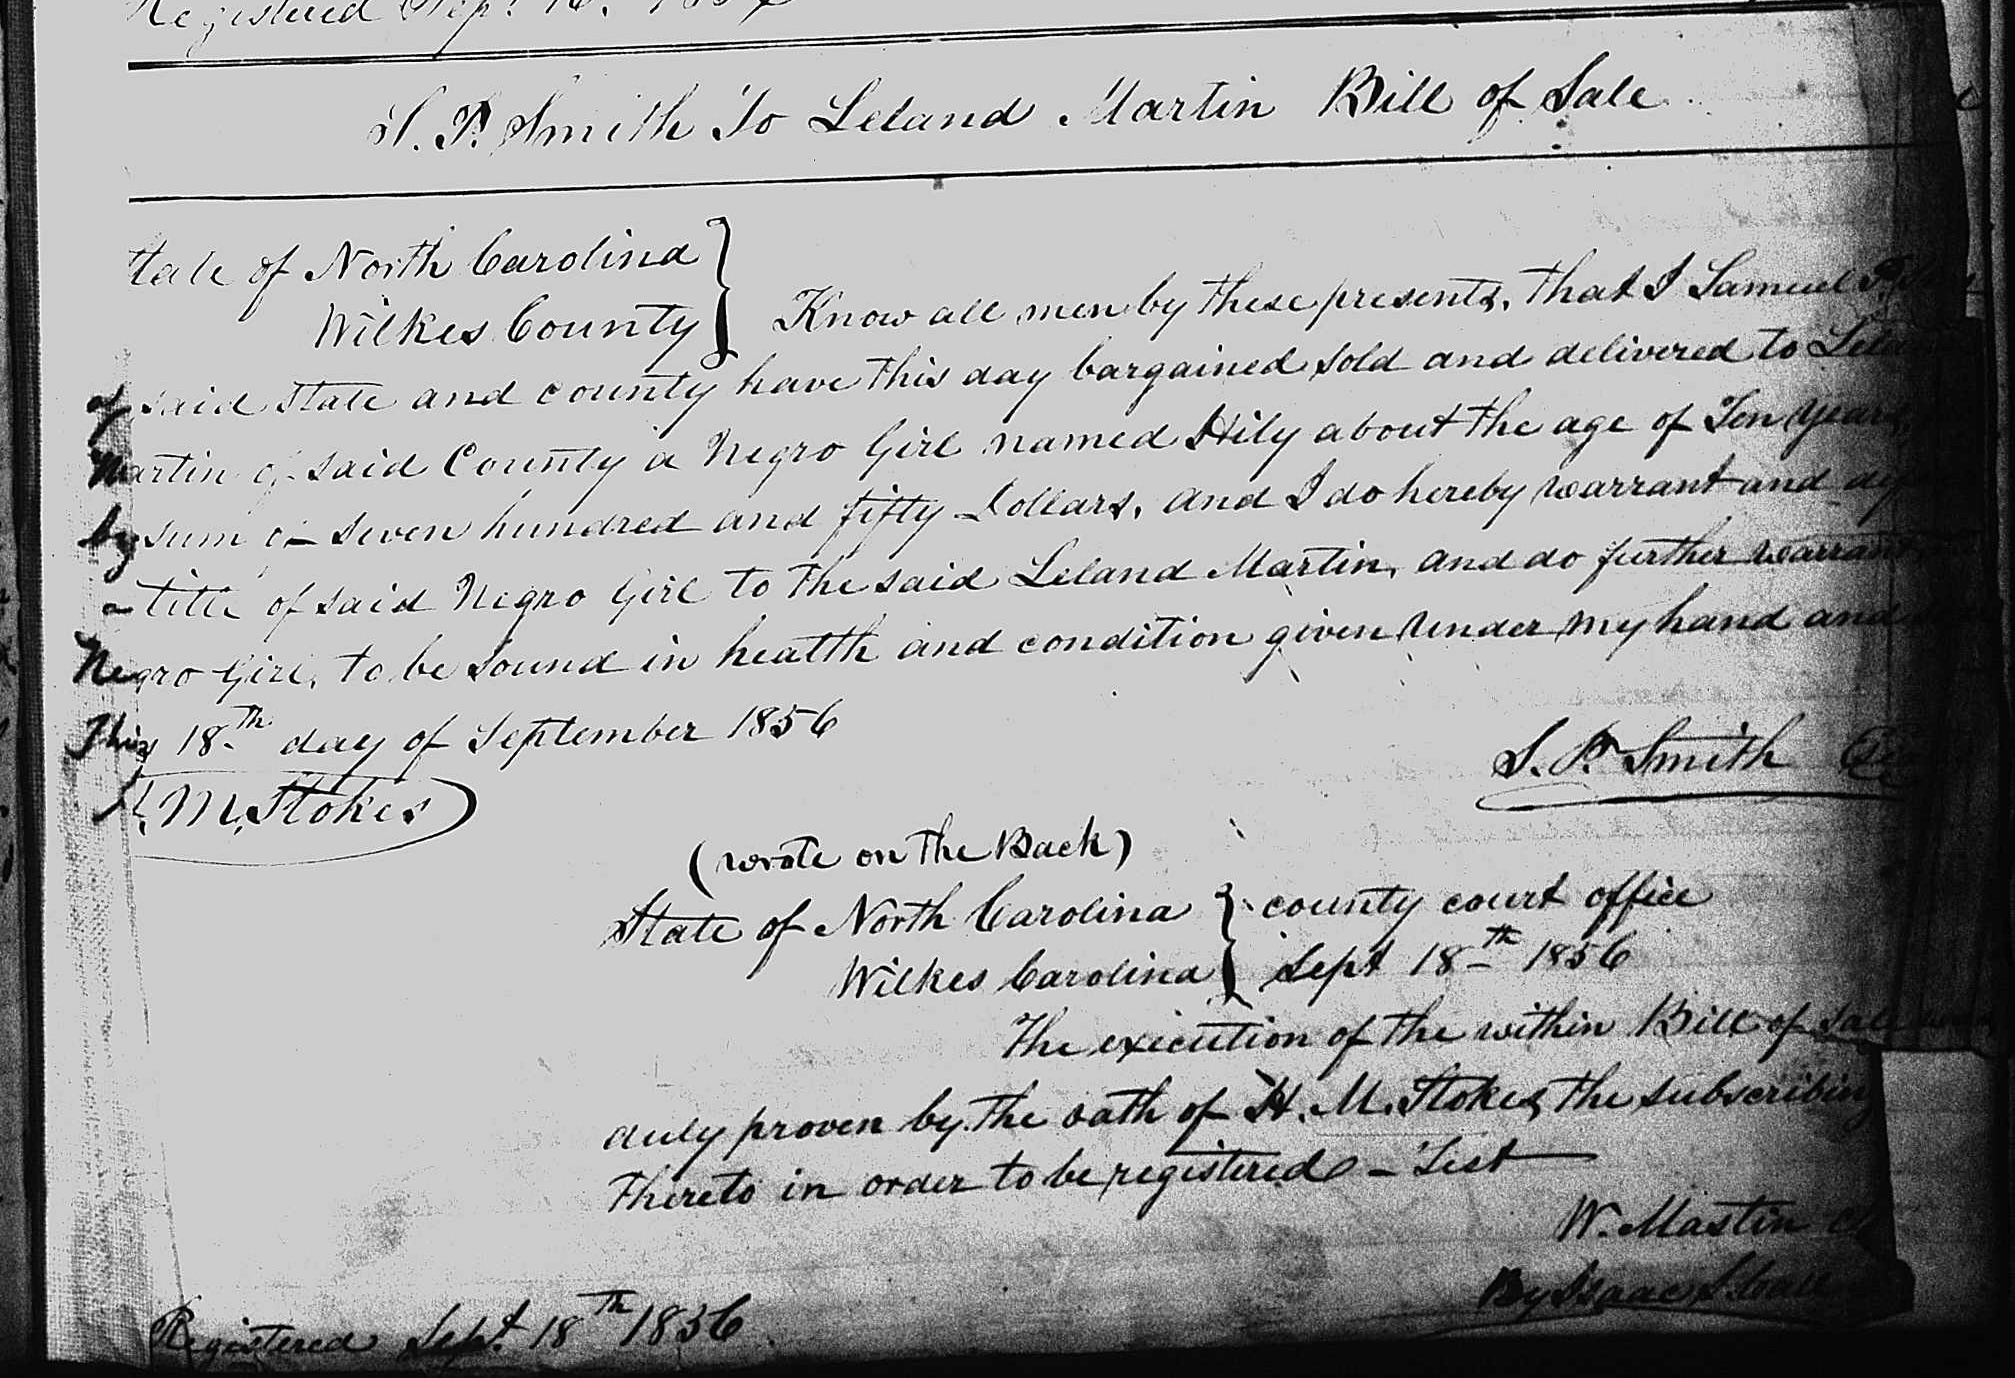 Registered Sept 16.
S. P. Smith To Leland Martin Bill of Sale
State of North Carolina
Wilkes County } Know all men by these presents, that I Samuel P.
of said State and county have this day bargained sold and delivered to Leland
Martin of said County a Negro Girl named Hily about the age of Ten years,
by sum of seven hundred and fifty Dollars, and I do hereby warrant and
title of said Negro Girl to the said Leland Martin, and do further warrant
Negro Girl, to be sound in health and condition given under my hand and
This 18th day of September 1856
S. P. Smith
H. M. Stokes
(wrote on the Back)
State of North Carolina } county court office
Wilkes Carolina } Sept 18th 1856
The execution of the within Bill of Sale was
duly proven by the oath of H. M. Stokes the subscribing
thereto in order to be registered - Test
W. Mastin
By Isaac S.
Registered Sept. 18th 1856